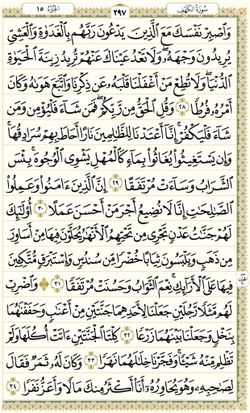 سورة الكهف ٢٩٧ الجزء ١٥
وَاصْبِرْ نَفْسَكَ مَعَ الَّذِينَ يَدْعُونَ رَبَّهُم بِالْغَدَوٰةِ وَالْعَشِيِّ
يُرِيدُونَ وَجْهَهُ وَلَا تَعْدُ عَيْنَاكَ عَنْهُمْ تُرِيدُ زِينَةَ الْحَيَوٰةِ
الدُّنْيَا وَلَا تُطِعْ مَنْ أَغْفَلْنَا قَلْبَهُ عَن ذِكْرِنَا وَاتَّبَعَ هَوَىٰهُ وَكَانَ
أَمْرُهُ فُرُطًا ٢٨ وَقُلِ الْحَقُّ مِن رَّبِّكُمْ فَمَن شَاءَ فَلْيُؤْمِن وَمَن
شَاءَ فَلْيَكْفُرْ إِنَّا أَعْتَدْنَا لِلظَّالِمِينَ نَارًا أَحَاطَ بِهِمْ سُرَادِقُهَا
وَإِن يَسْتَغِيثُوا يُغَاثُوا بِمَاءٍ كَالْمُهْلِ يَشْوِي الْوُجُوهَ بِئْسَ
الشَّرَابُ وَسَاءَتْ مُرْتَفَقًا ٢٩ إِنَّ الَّذِينَ ءَامَنُوا وَعَمِلُوا
الصَّالِحَاتِ إِنَّا لَا نُضِيعُ أَجْرَ مَنْ أَحْسَنَ عَمَلًا ٣٠ أُولَٰئِكَ
لَهُمْ جَنَّاتُ عَدْنٍ تَجْرِي مِن تَحْتِهِمُ الْأَنْهَارُ يُحَلَّوْنَ فِيهَا مِنْ أَسَاوِرَ
مِن ذَهَبٍ وَيَلْبَسُونَ ثِيَابًا خُضْرًا مِّن سُندُسٍ وَإِسْتَبْرَقٍ مُّتَّكِئِينَ
فِيهَا عَلَى الْأَرَائِكِ نِعْمَ الثَّوَابُ وَحَسُنَتْ مُرْتَفَقًا ٣١ وَاضْرِبْ
لَهُم مَّثَلًا رَّجُلَيْنِ جَعَلْنَا لِأَحَدِهِمَا جَنَّتَيْنِ مِنْ أَعْنَابٍ وَحَفَفْنَاهُمَا
بِنَخْلٍ وَجَعَلْنَا بَيْنَهُمَا زَرْعًا ٣٢ كِلْتَا الْجَنَّتَيْنِ ءَاتَتْ أُكُلَهَا وَلَمْ
تَظْلِم مِّنْهُ شَيْئًا وَفَجَّرْنَا خِلَالَهُمَا نَهَرًا ٣٣ وَكَانَ لَهُ ثَمَرٌ فَقَالَ
لِصَاحِبِهِ وَهُوَ يُحَاوِرُهُ أَنَا أَكْثَرُ مِنكَ مَالًا وَأَعَزُّ نَفَرًا ٣٤